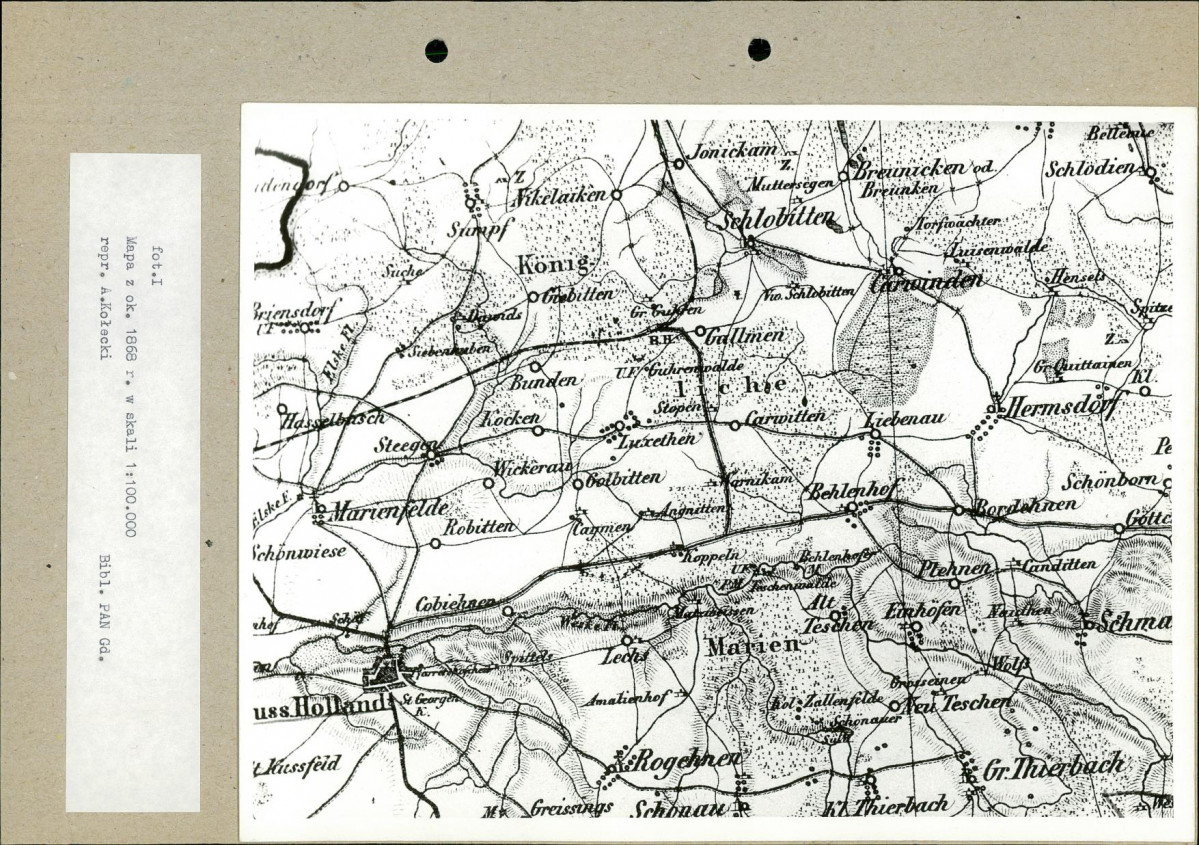 fot.I
Mapa z ok. 1868 r. w skali 1:100.000
repr. A.Kołecki Bibl. PAN Gd.
Bellevue
Jonickam
Z.
Breunicken od.
Breunken
Schlodien
Z
Nikelaiken
Muttersegen
Sumpf
Schlobitten
Torfwächter
Luisenwalde
König
Suche
Carwinden
Hensels
Giebitten
Vw. Schlobitten
Briensdorf
U.F.
Davids
Gr. Guhren
Spitze
B.H.
Gallmen
Z.
Elske Fl.
Siebenhuben
Bunden
U.F. Guhrenwalde
Gr. Quittainen
Kl.
liche
Hasselbusch
Kocken
Stopen
Carwitten
Liebenau
Hermsdorf
Steegen
Luxethen
Pe
Wickerau
Golbitten
Warnikam
Behlenhof
Schönborn
Marienfelde
Angnitten
Bordehnen
Göttc
Robitten
Canmen
Schönwiese
Koppeln
Behlenhofer
M.
U.F.
Plehnen
Canditten
P.M.
Teschenwalde
Cobiehnen
Alt
Teschen
Einhöfen
Nauthen
Schma
Schöf
Weske Fl.
Lechs
Marien
Wolfs
Spittels
Grosseinen
uss. Holland
St. Georgen
K.
Amalienhof
Kol. Zallenfelde
Neu Teschen
Schönauer
t Kussfeld
Rogehnen
Gr. Thierbach
M.
Greissings
Schönau
Kl. Thierbach